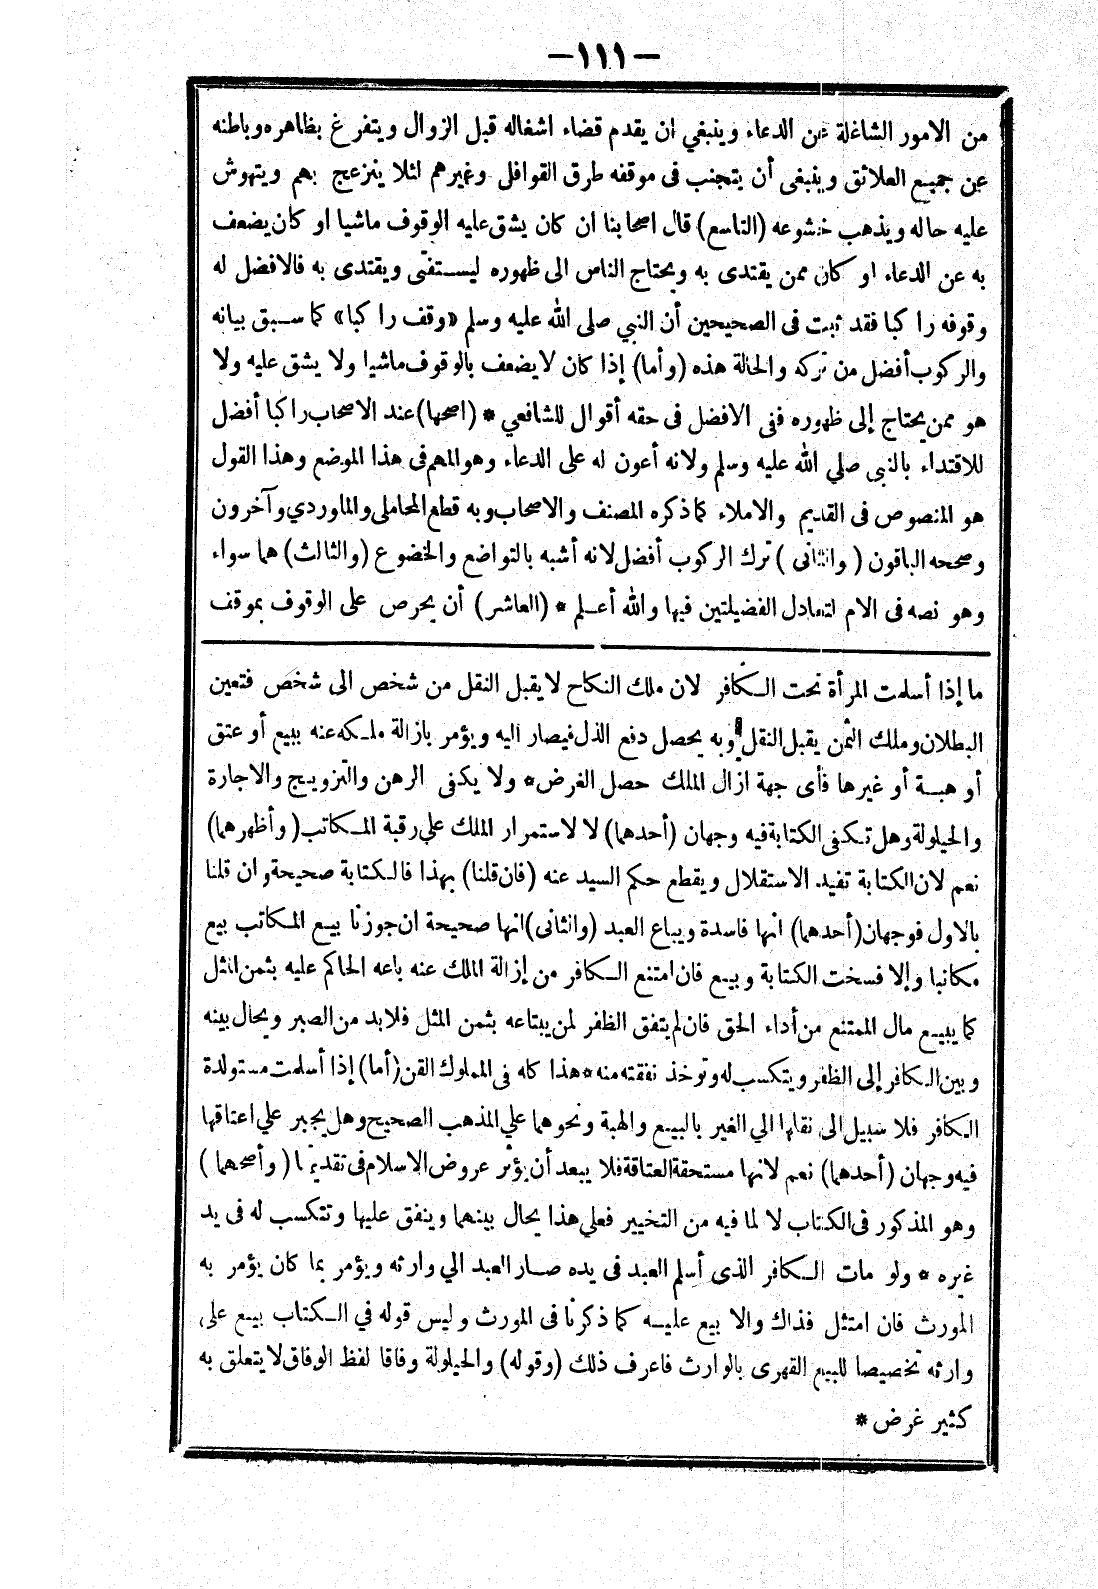 —١١١—
من الامور الشاغلة عن الدعاء وينبغي ان يقدم قضاء اشغاله قبل الزوال ويتفرغ بظاهره وباطنه
عن جميع العلائق وينبغى أن يتجنب فى موقفه طرق القوافل وغيرهم لئلا ينزعج بهم ويتهوش
عليه حاله ويذهب خشوعه (التاسع) قال اصحابنا ان كان يشق عليه الوقوف ماشيا او كان يضعف
به عن الدعاء او كان ممن يقتدى به ويحتاج الناس الى ظهوره ليستفتى ويقتدى به فالافضل له
وقوفه را كبا فقد ثبت فى الصحيحين أن النبي صلى الله عليه وسلم «وقف را كبا» كما سبق بيانه
والركوب أفضل من تركه والحالة هذه (وأما) إذا كان لا يضعف بالوقوف ماشيا ولا يشق عليه ولا
هو ممن يحتاج إلى ظهوره ففى الافضل فى حقه أقوال للشافعي * (اصحها) عند الاصحاب راكبا أفضل
للاقتداء بالنبى صلي الله عليه وسلم ولانه أعون له على الدعاء وهو المهم فى هذا الموضع وهذا القول
هو المنصوص فى القديم والاملاء كما ذكره المصنف والاصحاب وبه قطع المحاملى والماوردي وآخرون
وصححه الباقون (والثانى) ترك الركوب أفضل لانه أشبه بالتواضع والخضوع (والثالث) هما سواء
وهو نصه فى الام لتعادل الفضيلتين فيها والله أعلم * (العاشر) أن يحرص على الوقوف بموقف
ما إذا أسلمت المرأة تحت الكافر لان ملك النكاح لا يقبل النقل من شخص الى شخص فتعين
البطلان وملك الثمن يقبل النقل وبه يحصل دفع الذل فيصار اليه ويؤمر بازالة ملكه عنه ببيع أو عتق
أو هبة أو غيرها فأى جهة ازال الملك حصل الغرض * ولا يكفى الرهن والتزويج والاجارة
والحيلولة وهل تكفى الكتابة فيه وجهان (أحدهما) لا لاستمرار الملك علي رقبة المكاتب (وأظهرهما)
نعم لان الكتابة تفيد الاستقلال ويقطع حكم السيد عنه (فان قلنا) بهذا فالكتابة صحيحة وان قلنا
بالاول فوجهان (أحدهما) انها فاسدة ويباع العبد (والثانى) انها صحيحة ان جوزنا بيع المكاتب بيع
مكاتبا وإلا فسخت الكتابة وبيع فان امتنع الكافر من إزالة الملك عنه باعه الحاكم عليه بثمن المثل
كما يبيع مال الممتنع من أداء الحق فان لم يتفق الظفر لمن يبتاعه بثمن المثل فلابد من الصبر ويحال بينه
وبين الكافر إلى الظفر ويتكسب له وتوخذ نفقته منه * هذا كله فى المملوك القن (أما) إذا أسلمت مستولدة
الكافر فلا سبيل الى نقلها الي الغير بالبيع والهبة ونحوهما علي المذهب الصحيح وهل يجبر علي اعتاقها
فيه وجهان (أحدهما) نعم لانها مستحقة العتاقة فلا يبعد أن يؤثر عروض الاسلام فى تقديمها (وأصحهما)
وهو المذكور فى الكتاب لا لما فيه من التخيير فعلي هذا يحال بينهما وينفق عليها وتتكسب له فى يد
غيره * ولو مات الكافر الذى أسلم العبد فى يده صار العبد الي وارثه ويؤمر بما كان يؤمر به
المورث فان امتثل فذاك والا بيع عليه كما ذكرنا فى المورث وليس قوله في الكتاب بيع على
وارثه تخصيصا للبيع القهرى بالوارث فاعرف ذلك (وقوله) والحيلولة وفاقا لفظ الوفاق لا يتعلق به
كثير غرض *